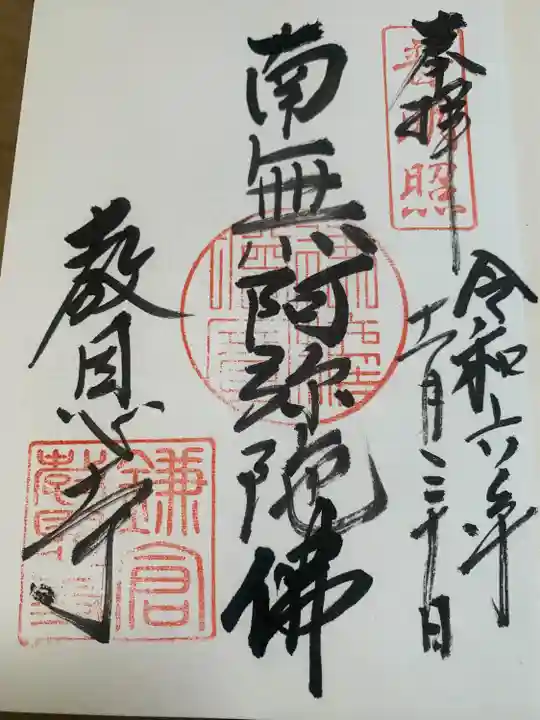 奉拝
令和六年
十一月三十日
南無阿弥陀佛
教恩寺
鎌倉
教恩寺